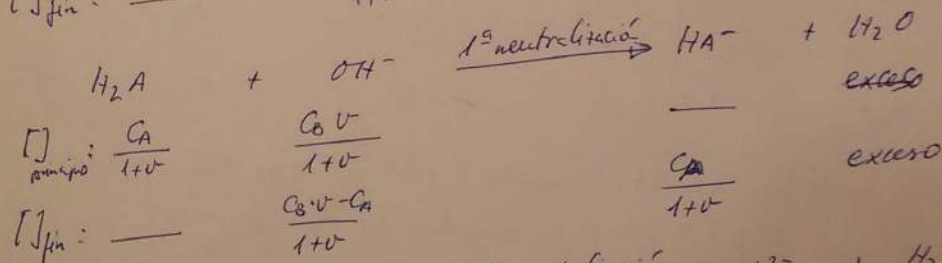 [ ]fin: ——
H₂A + OH⁻ 1ª neutralizació → HA⁻ + H₂O
exceso
[ ]principio: C_A/(1+v) C_B v/(1+v) —— exceso
[ ]fin: —— (C_B·v-C_A)/(1+v) C_A/(1+v)